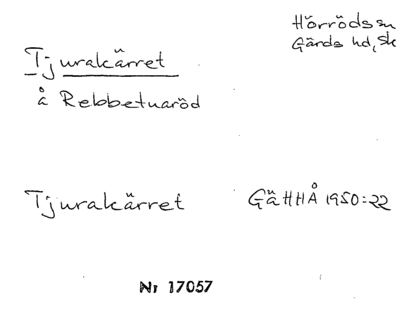 Hörröds sn
Gärds hd, Sk
Tjurakärret
å Rebbetuaröd
Tjurakärret GäHHÅ 1950:22
Nr 17057